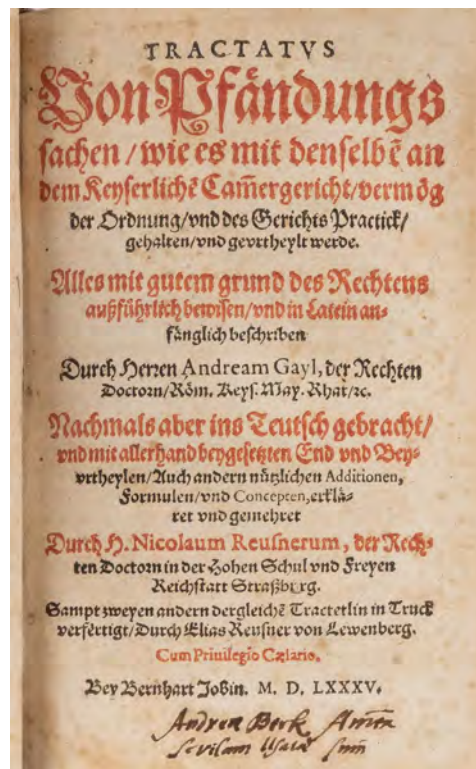 TRACTATVS
Von Pfändungs
sachen / wie es mit denselbẽ an
dem Keyserlichẽ Cam̃ergericht / vermög
der Ordnung / vnd des Gerichts Practick /
gehalten / vnd gevrtheylt werde.
Alles mit gutem grund des Rechtens
außführlich bewisen / vnd in Latein an-
fänglich beschriben
Durch Herren Andream Gayl, der Rechten
Doctorn / Röm. Keys. May. Rhat / ꝛc.
Nachmals aber ins Teutsch gebracht /
vnd mit allerhand beygesetzten End vnd Bey-
vrtheylen / Auch andern nützlichen Additionen,
Formulen / vnd Concepten, erklä-
ret vnd gemehret
Durch H. Nicolaum Reusnerum, der Rech-
ten Doctorn in der Hohen Schul vnd Freyen
Reichstatt Straßburg.
Sampt zweyen andern dergleichẽ Tractetlin in Truck
verfertigt / Durch Elias Reusner von Lewenberg.
Cum Priuilegio Cæsario.
Bey Bernhart Jobin. M. D. LXXXV.